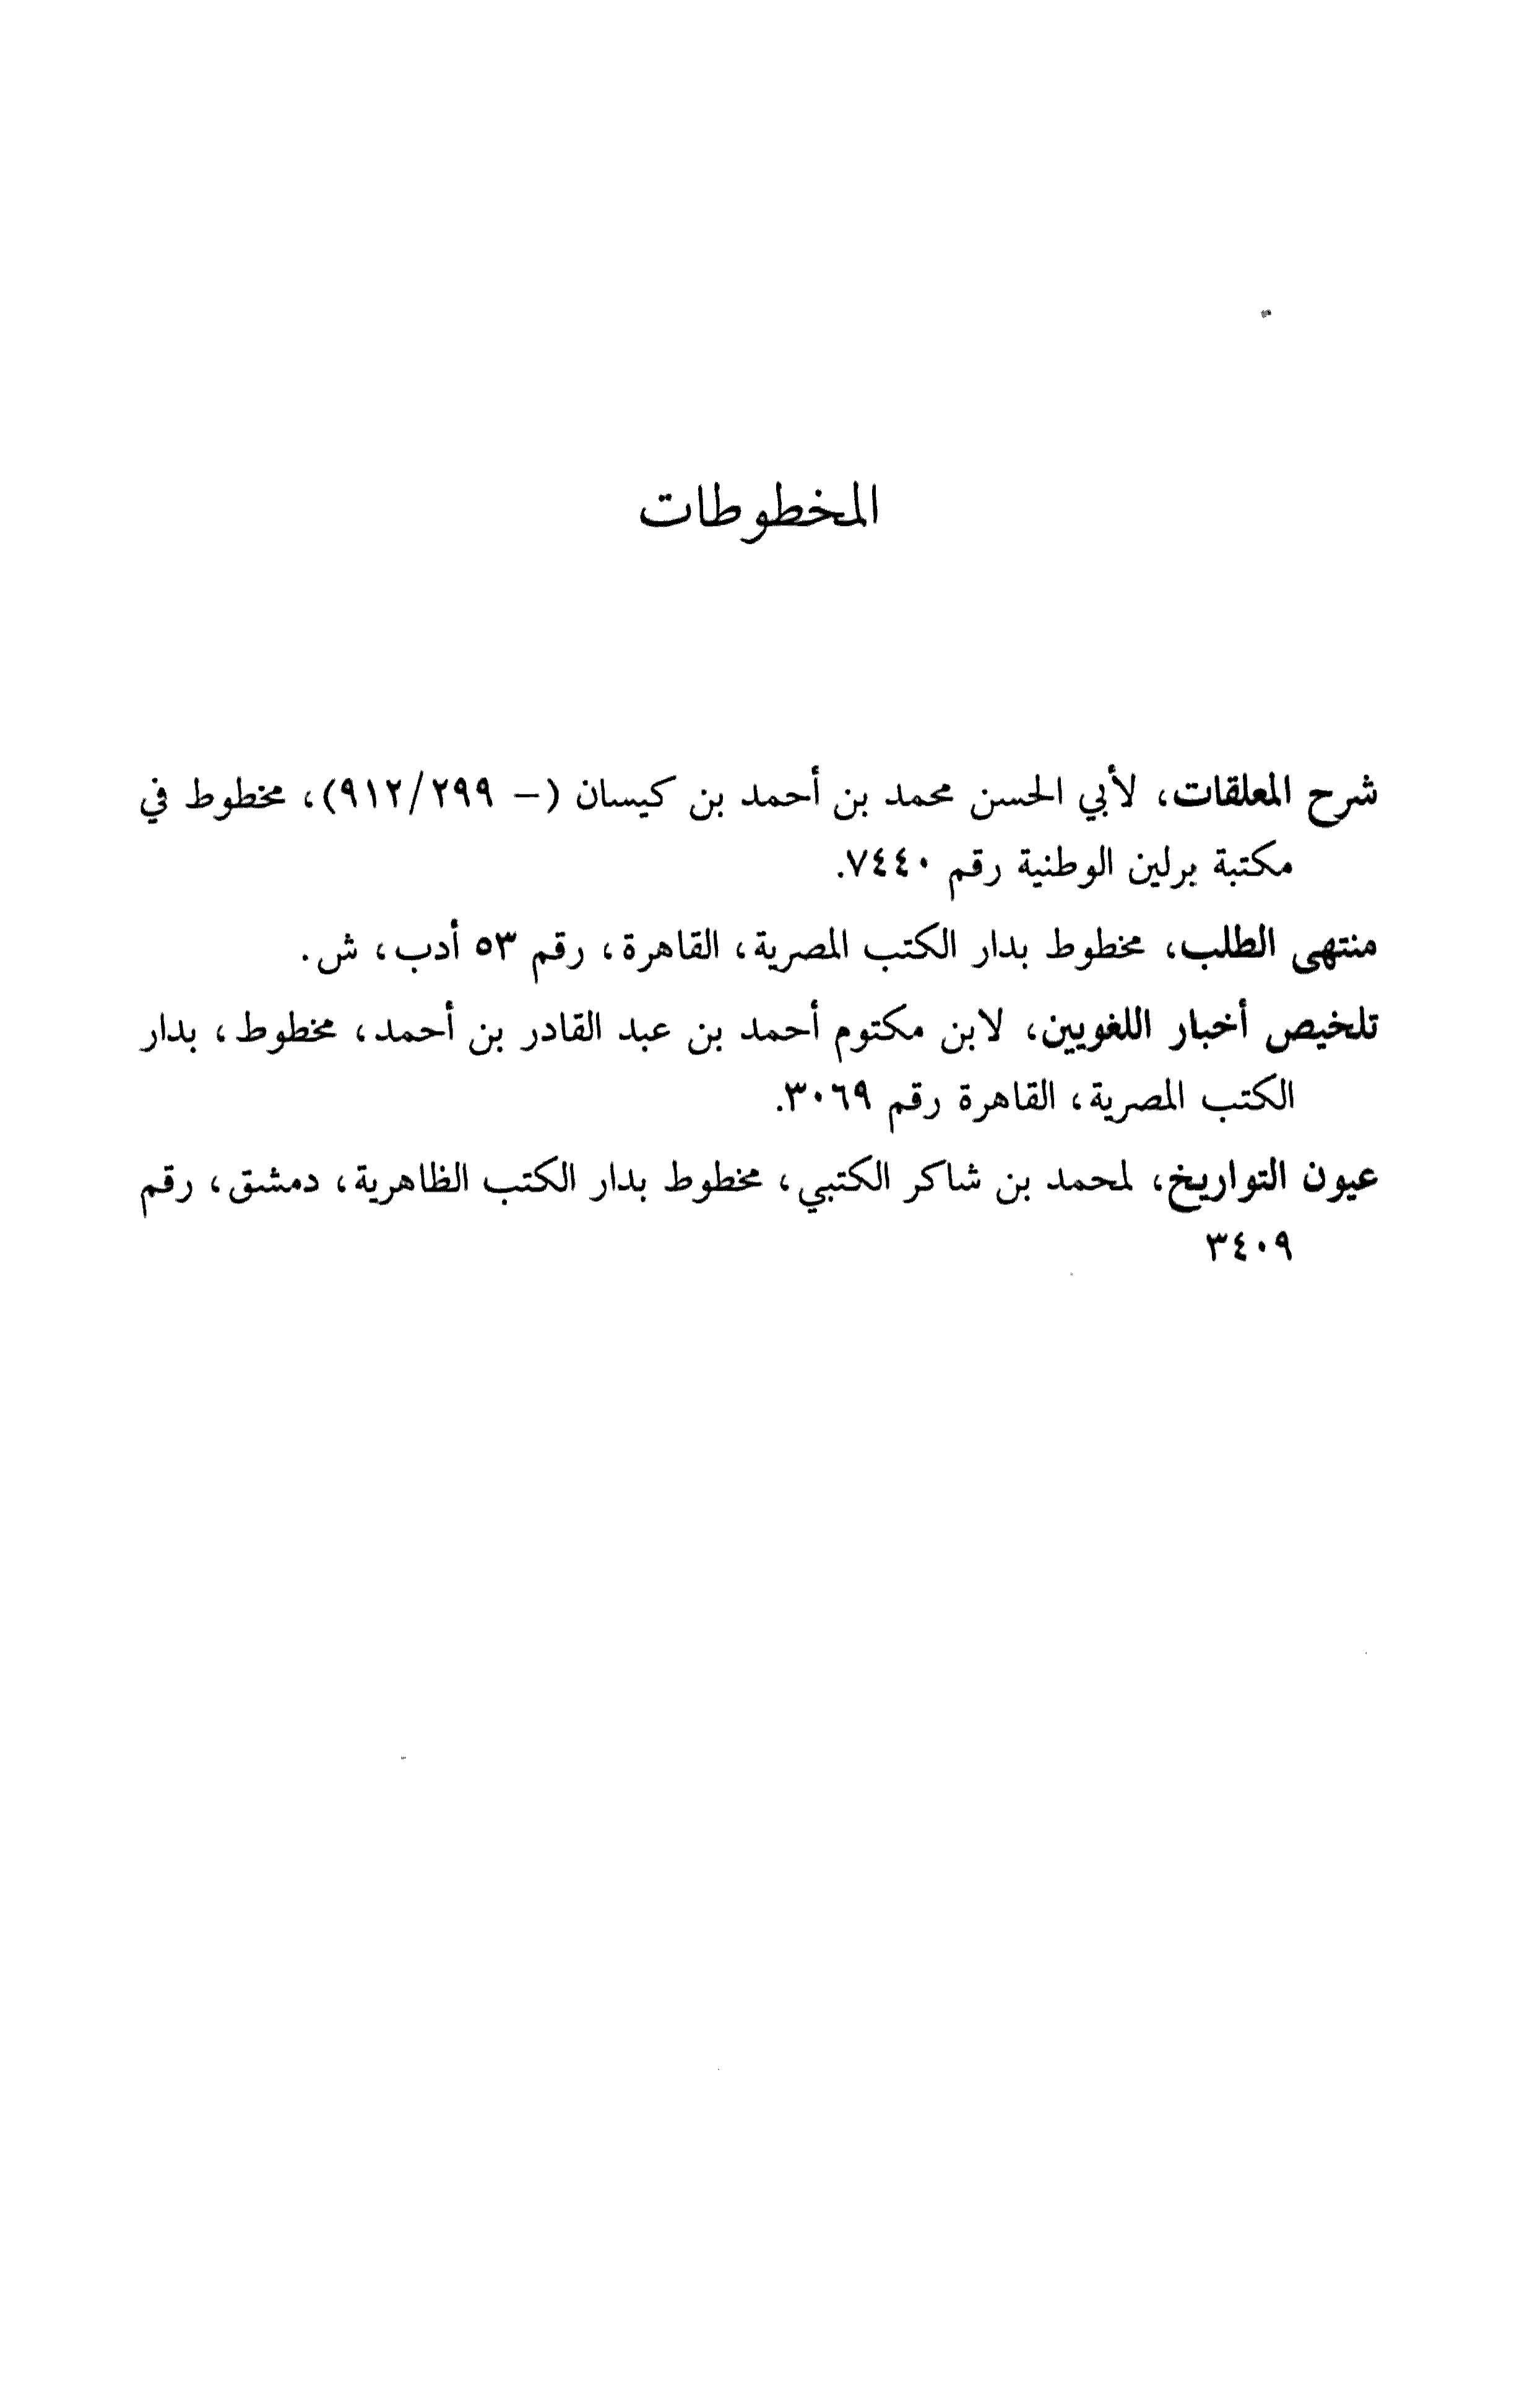 المخطوطات
شرح المعلقات، لأبي الحسن محمد بن أحمد بن كيسان (– ٢٩٩/٩١٢)، مخطوط في
مكتبة برلين الوطنية رقم ٧٤٤٠.
منتهى الطلب، مخطوط بدار الكتب المصرية، القاهرة، رقم ٥٣ أدب، ش.
تلخيص أخبار اللغويين، لابن مكتوم أحمد بن عبد القادر بن أحمد، مخطوط، بدار
الكتب المصرية، القاهرة رقم ٣٠٦٩.
عيون التواريخ، لمحمد بن شاكر الكتبي، مخطوط بدار الكتب الظاهرية، دمشق، رقم
٣٤٠٩